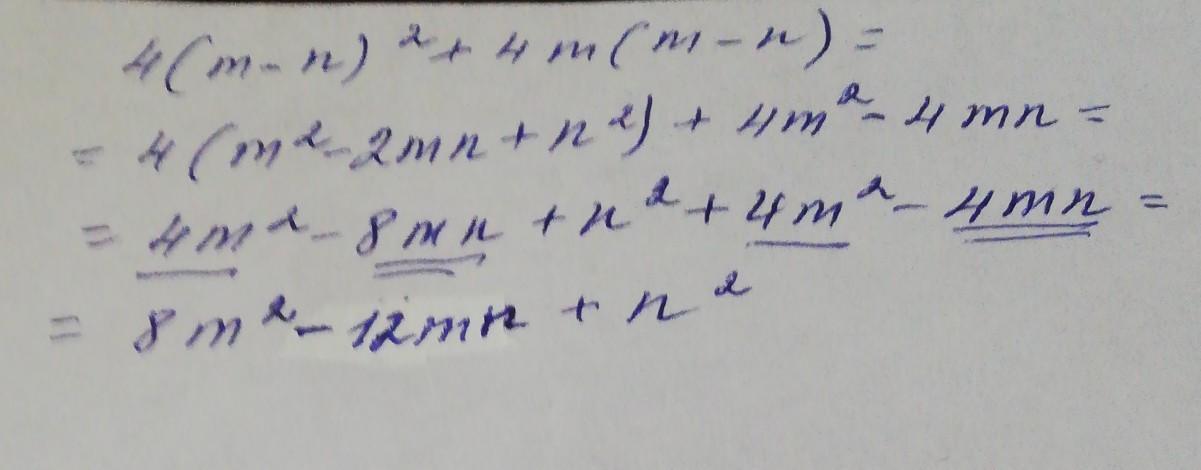 4(m-n)²+4m(m-n)=
=4(m²-2mn+n²)+4m²-4mn=
=4m²-8mn+n²+4m²-4mn=
=8m²-12mn+n²